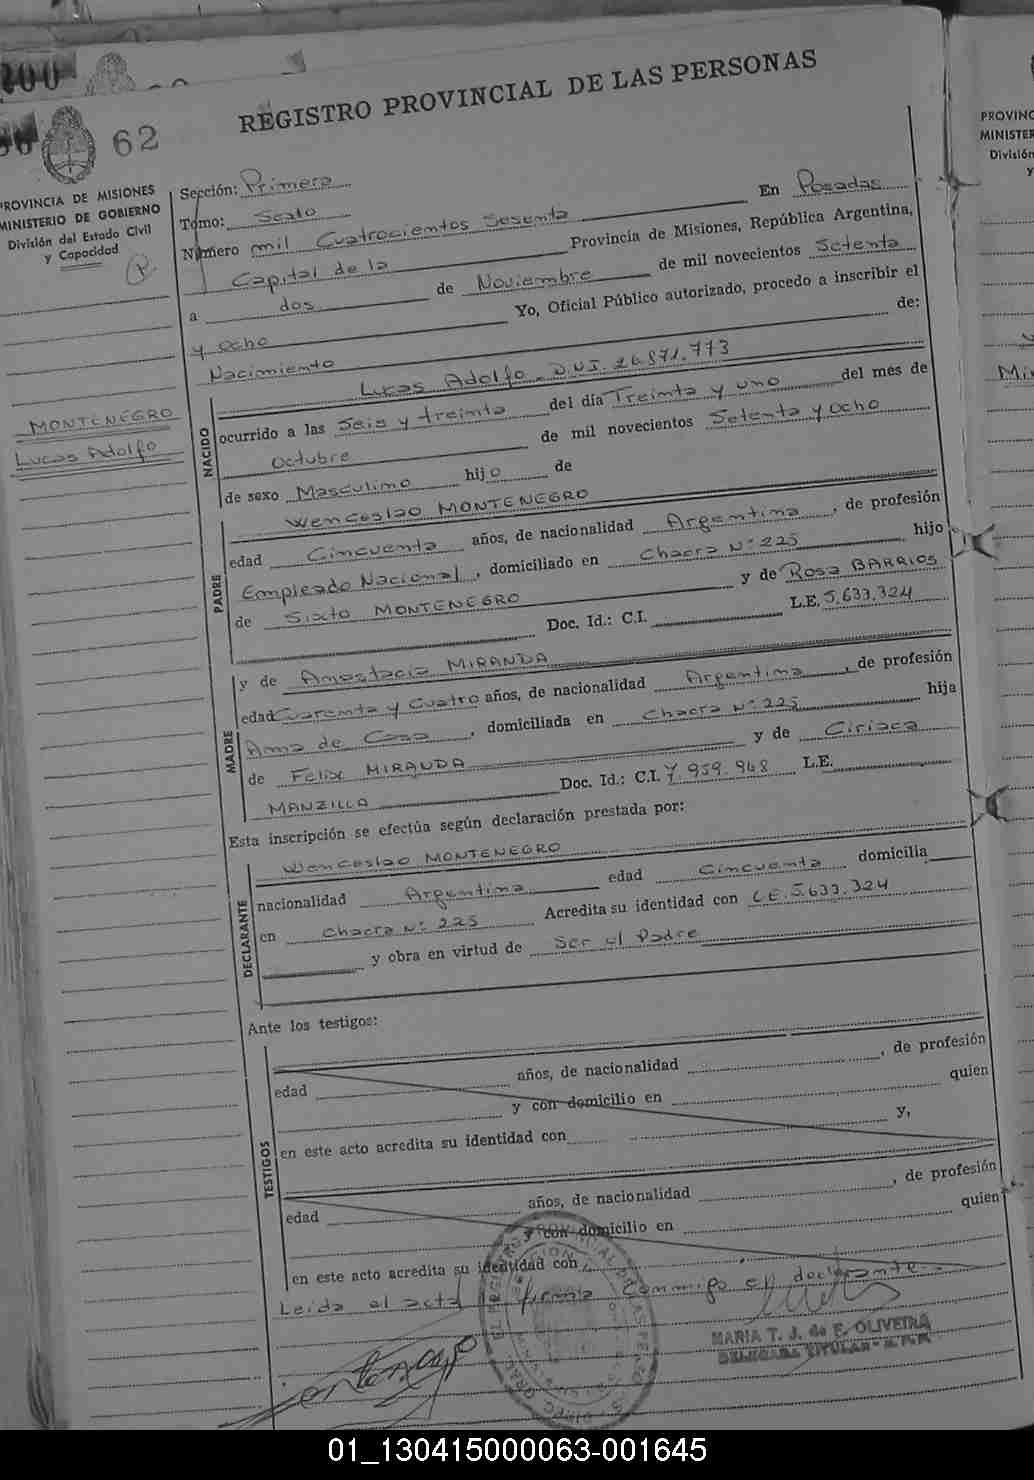 REGISTRO PROVINCIAL DE LAS PERSONAS
62
PROVINCIA DE MISIONES
MINISTERIO DE GOBIERNO
División del Estado Civil
y Capacidad
MONTENEGRO
Lucas Adolfo
Sección: Primera
Tomo: Sexto
Número mil Cuatrocientos Sesenta En Posadas
Capital de la Provincia de Misiones, República Argentina,
a dos de Noviembre de mil novecientos Setenta
y Ocho Yo, Oficial Público autorizado, procedo a inscribir el
Nacimiento de:
NACIDO
Lucas Adolfo D.N.I. 26.871.773
ocurrido a las Seis y treinta del día Treinta y uno del mes de
Octubre de mil novecientos Setenta y Ocho
de sexo Masculino hijo de
PADRE
Wenceslao MONTENEGRO
edad Cincuenta años, de nacionalidad Argentina, de profesión
Empleado Nacional, domiciliado en Chacra Nº 225 hijo
de Sixto MONTENEGRO y de Rosa BARRIOS
Doc. Id.: C.I. L.E. 5.633.324
MADRE
y de Anastacia MIRANDA
edad Cuarenta y Cuatro años, de nacionalidad Argentina, de profesión
Ama de Casa, domiciliada en Chacra Nº 225 hija
de Felix MIRANDA y de Ciriaca
MANZILLA Doc. Id.: C.I. Y.959.948 L.E.
Esta inscripción se efectúa según declaración prestada por:
DECLARANTE
Wenceslao MONTENEGRO
nacionalidad Argentina edad Cincuenta domicilia
en Chacra Nº 225 Acredita su identidad con L.E. 5.633.324
y obra en virtud de Ser el Padre
Ante los testigos:
TESTIGOS
edad años, de nacionalidad , de profesión
y con domicilio en quien
en este acto acredita su identidad con y,
edad años, de nacionalidad , de profesión
y con domicilio en quien
en este acto acredita su identidad con
Leida el acta firma Conmigo el declarante.
MARIA T. J. de F. OLIVEIRA
DELEGADA TITULAR - R.P.P.
PROVINC
MINISTER
División
y
01_130415000063-001645